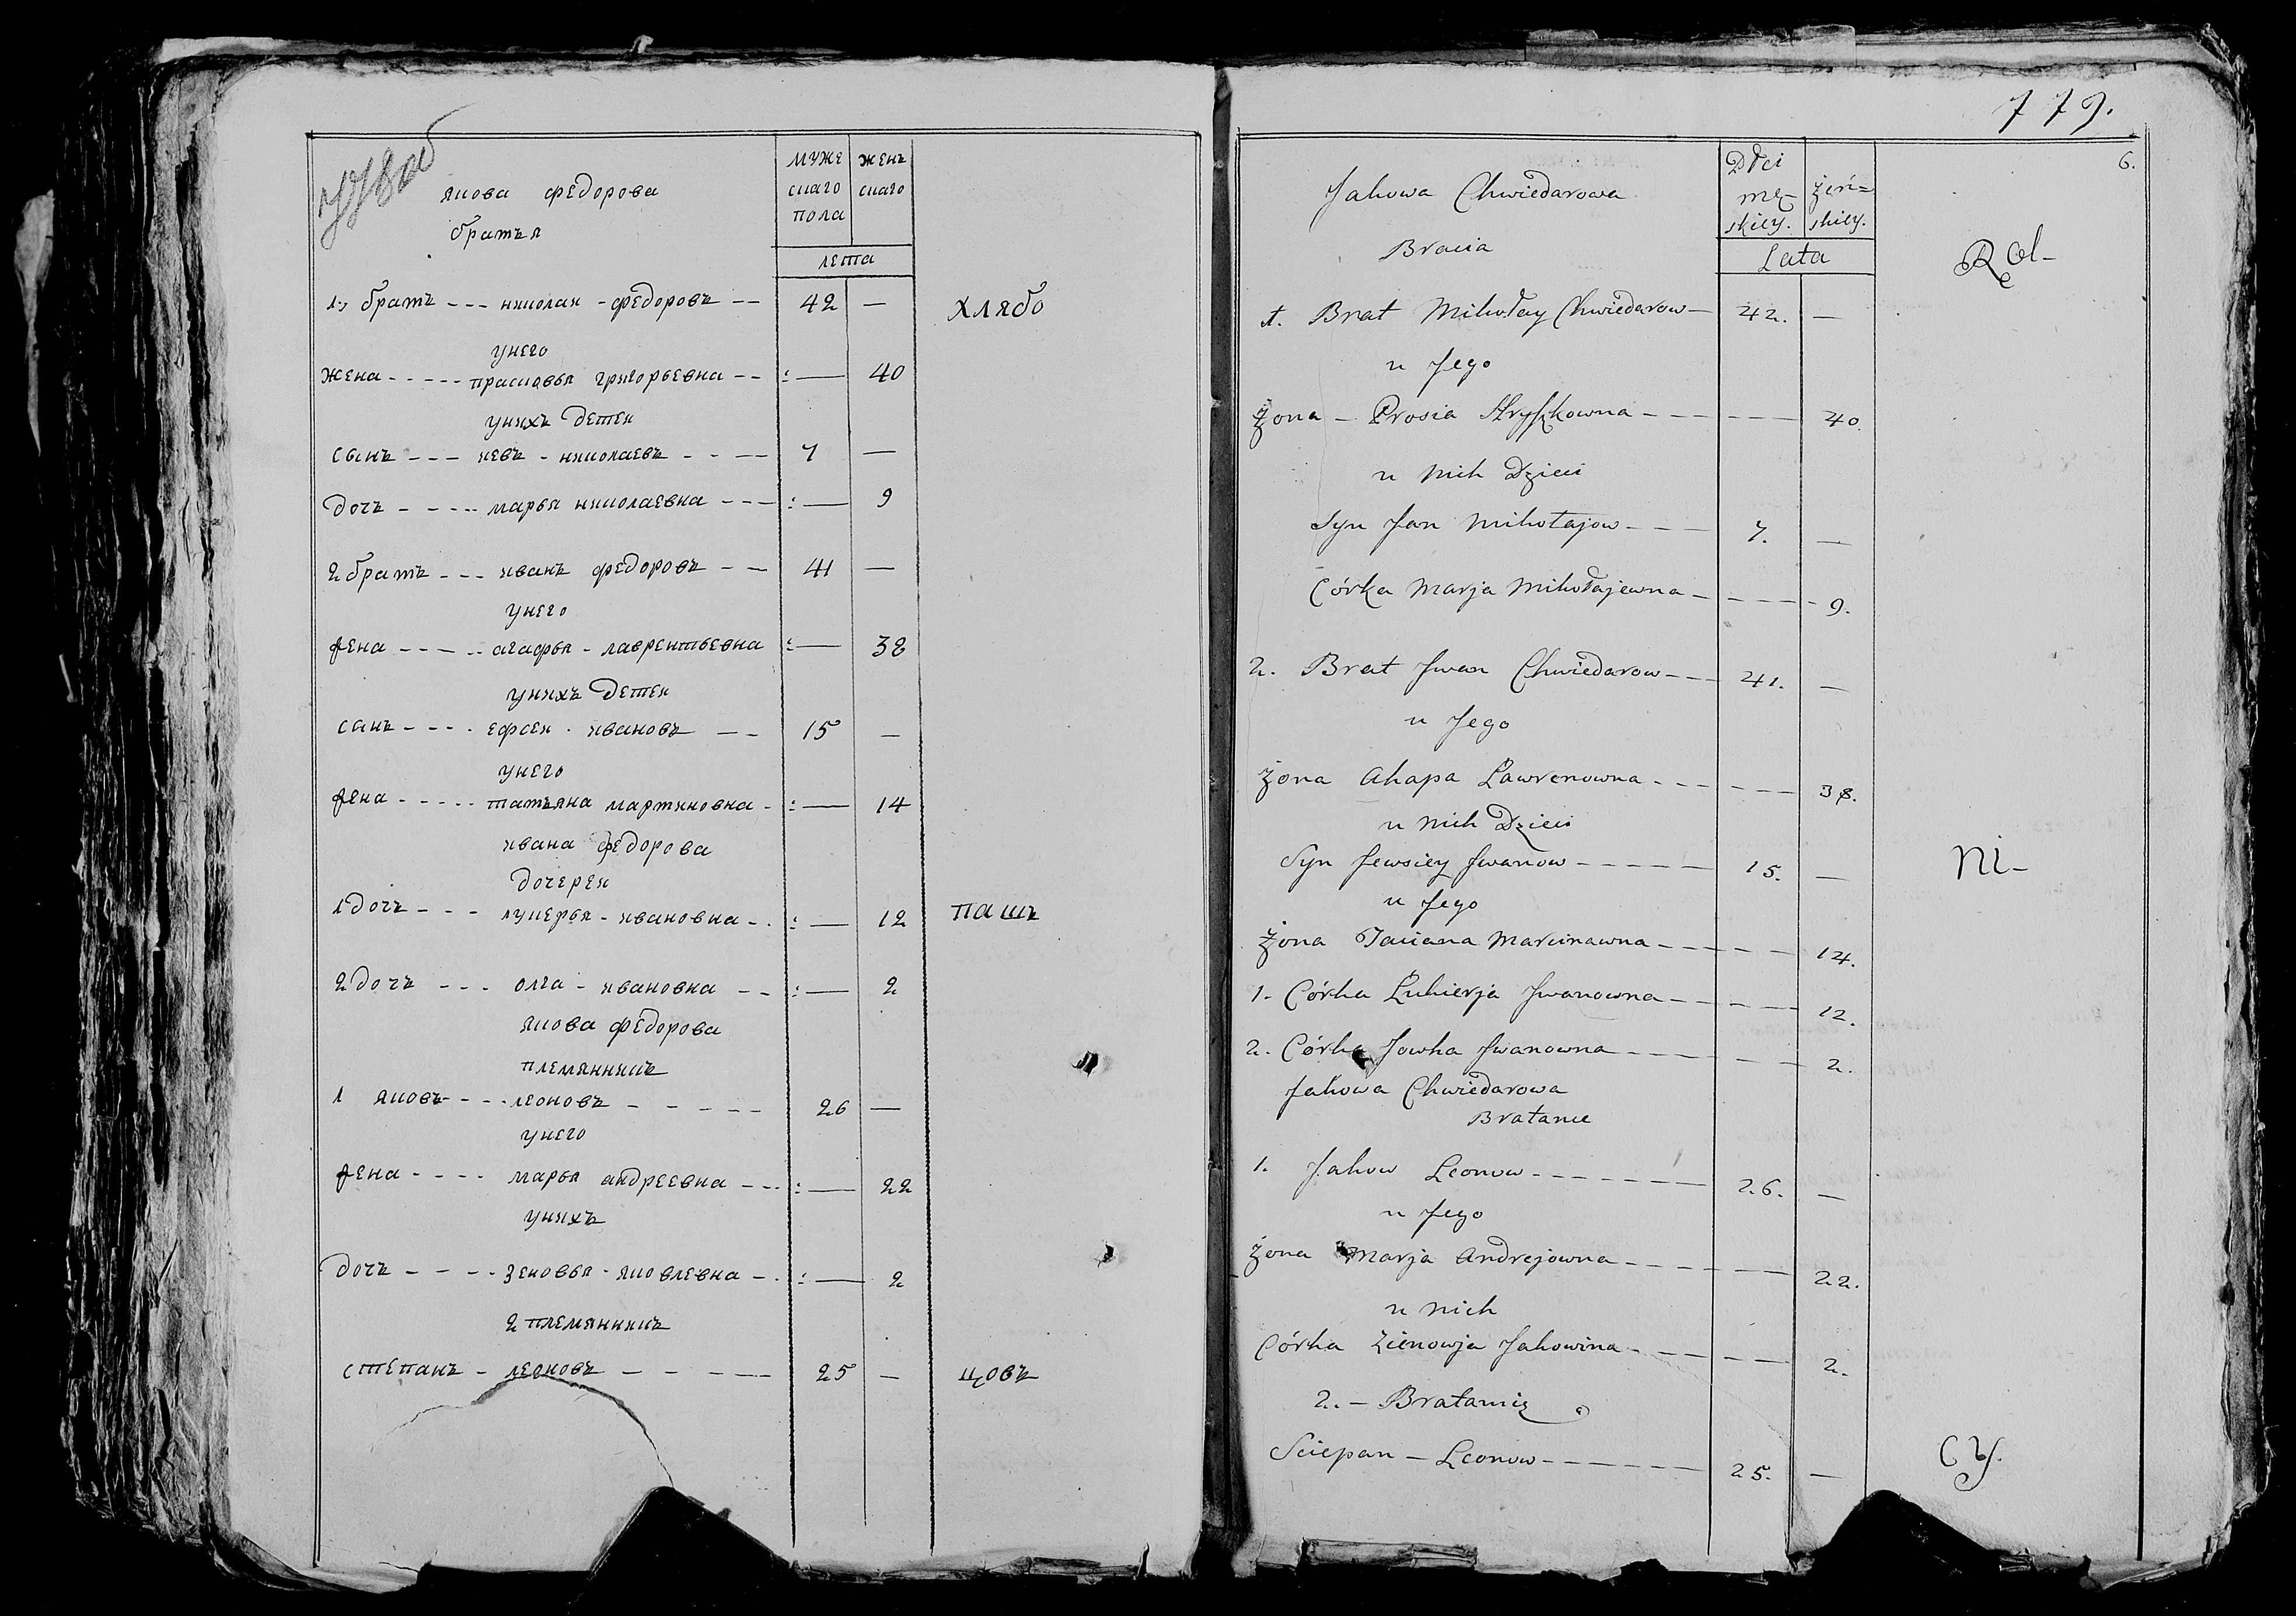 778об
якова федорова
братья
муже
скаго
пола
женъ
скаго
лета
1, братъ --- николаи - федоровъ -- 42 —
хлябо
унего
жена ----- прасковья григорьевна -- :— 40
унихъ детеи
сынъ --- иевъ - николаевъ - - -- 7 —
дочъ - - --- марья николаевна --- :— 9
2 братъ --- иванъ федоровъ -- 41 —
унего
жена --- -- агафья - лаврентьевна :— 38
унихъ детеи
санъ --- . ефсеи . ивановъ -- 15 —
унего
жена - ---- татьяна мартиновна - :— 14
ивана федорова
дочереи
1 дочъ --- лукерья - ивановна - . :— 12
пашъ
2 дочъ --- олга - ивановна -- :— 2
якова федорова
племянникъ
1 яковъ --- леоновъ - - --- 26 —
унего
жена - --- марья андреевна --- :— 22
унихъ
дочъ - - -- зеновья - яковлевна - . :— 2
2 племянникъ
степанъ - леоновъ - - --- 25 —
цовъ
779.
6.
Jakowa Chwiedarowa
Bracia
Płci
mę-
skiey.
żeń=
skiey.
Lata
Rol-
1. Brat Mikołay Chwiedarow — 42. —
u Jego
Żona — Prosia Hryszkowna - - - --- 40.
u Nich Dzieci
Syn Jan Mikołajow - - - 7. —
Córka Marja Mikołajewna - - --- 9.
2. Brat Jwan Chwiedarow --- 41. —
u Jego
Żona Ahapa Ławrenowna - - - --- 38.
u Nich Dzieci
Syn Jewsiey Jwanow - - - - - 15. —
ni-
u Jego
Żona Taciana Marcinawna - - - --- 14.
1. Córka Łukierja Jwanowna - - - --- 12.
2. Córka Jowha Jwanowna - - - --- 2.
Jakowa Chwiedarowa
Bratance
1. Jakow Leonow - - - - - - 26. —
u Jego
Żona Marja Andrejowna - - - --- 22.
u Nich
Córka Zienowja Jakowina - - - --- 2.
2. — Bratanie
Sciepan — Leonow - - - - - - 25. —
cy.